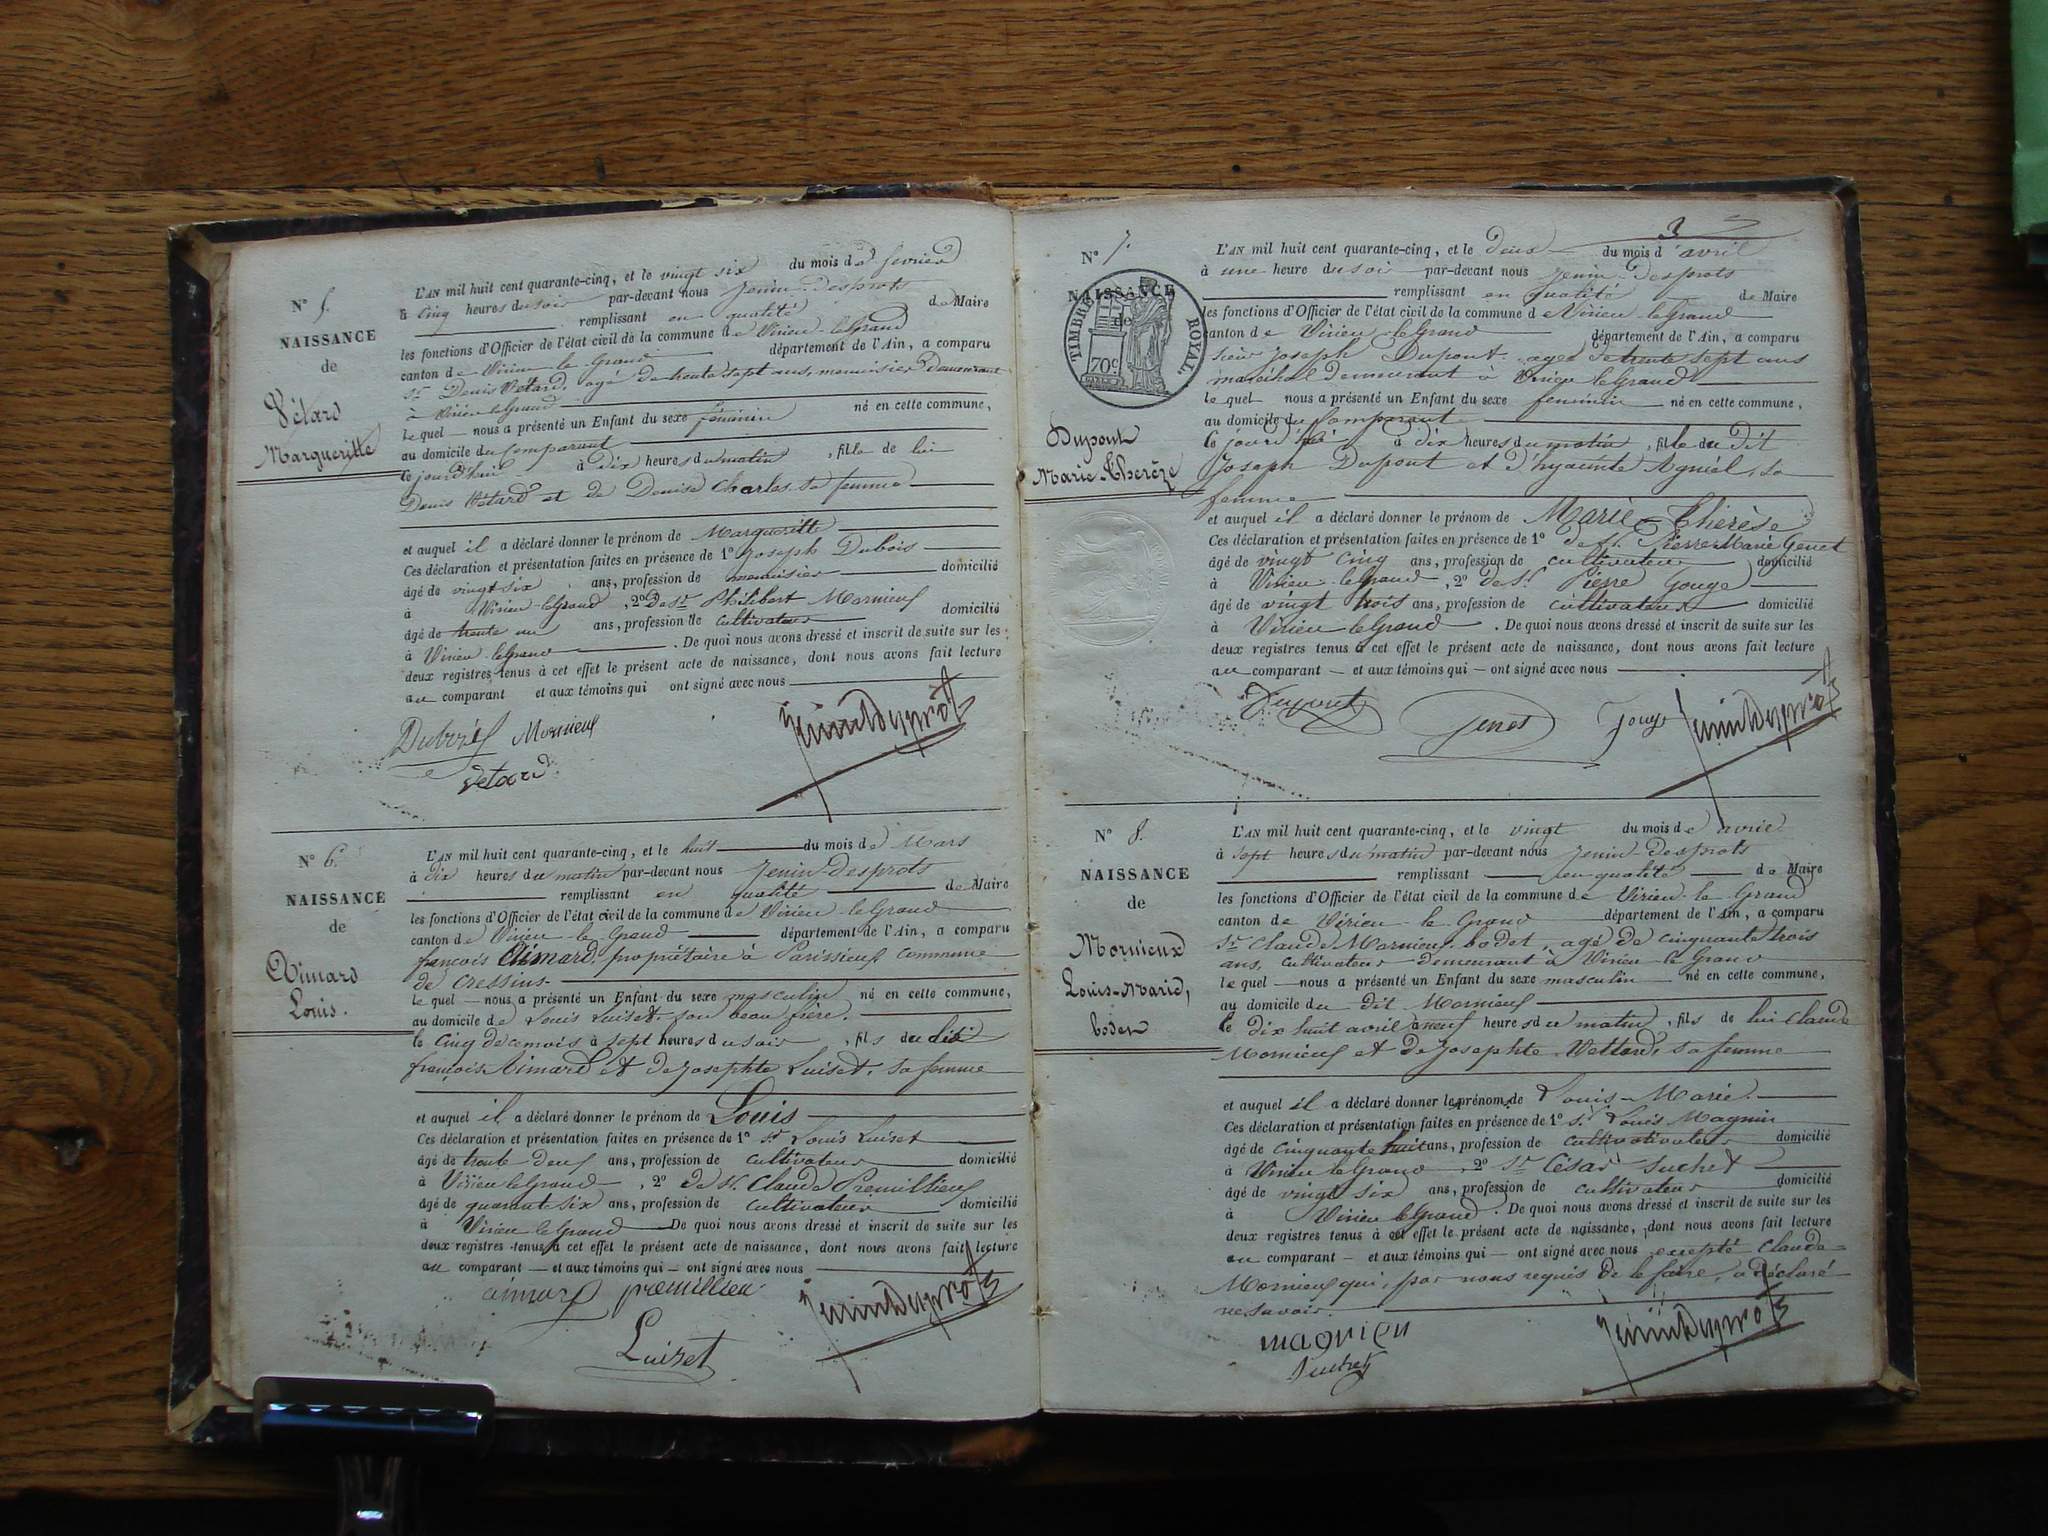 N° 5.
NAISSANCE
de
Vétard
Margueritte
L'AN mil huit cent quarante-cinq, et le vingt six du mois de fevrier
à cinq heures du soir par-devant nous Jenin-Desprots
remplissant en qualité de Maire
les fonctions d'Officier de l'état civil de la commune de Virieu-le-Grand
canton de Virieu-le-Grand département de l'Ain, a comparu
Sr. Denis Vétard, agé de trente sept ans, menuisier Demeurant
à Virieu le Grand
le quel nous a présenté un Enfant du sexe féminin né en cette commune,
au domicile du Comparant
ce jourd'hui à dix heures du matin, fille de lui
Denis Vétard et de Denise Charles sa femme
et auquel il a déclaré donner le prénom de Margueritte
Ces déclaration et présentation faites en présence de 1° Joseph Dubois
âgé de vingt six ans, profession de menuisier domicilié
à Virieu-le-Grand, 2° De Sr. Philibert Mornieux
âgé de trente un ans, profession de cultivateur domicilié
à Virieu-le-Grand. De quoi nous avons dressé et inscrit de suite sur les
deux registres tenus à cet effet le présent acte de naissance, dont nous avons fait lecture
au comparant et aux témoins qui ont signé avec nous
Mornieux
Vetard
N° 6.
NAISSANCE
de
Aimard
Louis.
L'AN mil huit cent quarante-cinq, et le huit du mois de Mars
à dix heures du matin par-devant nous Jenin-Desprots
remplissant en qualité de Maire
les fonctions d'Officier de l'état civil de la commune de Virieu-le-Grand
canton de Virieu-le-Grand département de l'Ain, a comparu
françois Aimard, propriétaire à Parissieux commune
de Cressins
le quel nous a présenté un Enfant du sexe masculin né en cette commune,
au domicile de Louis Luiset, son beau frère.
le cinq de ce mois à sept heures du soir, fils du dit
françois Aimard et de Josephte Luiset, sa femme
et auquel il a déclaré donner le prénom de Louis
Ces déclaration et présentation faites en présence de 1° Sr Louis Luiset
âgé de trente deux ans, profession de cultivateur domicilié
à Virieu le Grand, 2° de Sr. Claude Premillieux
âgé de quarante six ans, profession de cultivateur domicilié
à Virieu le Grand De quoi nous avons dressé et inscrit de suite sur les
deux registres tenus à cet effet le présent acte de naissance, dont nous avons fait lecture
au comparant et aux témoins qui ont signé avec nous
aimard premillieu
Luiset
3
N° 7.
NAISSANCE
de
TIMBRE ROYAL.
70c
Dupont
Marie-Therèze
L'AN mil huit cent quarante-cinq, et le Deux du mois d'avril
à une heure du soir par-devant nous Jenin-Desprots
remplissant en qualité de Maire
les fonctions d'Officier de l'état civil de la commune de Virieu-le-Grand
canton de Virieu-le-Grand département de l'Ain, a comparu
Sieur Joseph Dupont. agé de trente sept ans
maréchal demeurant à Virieu le Grand
le quel nous a présenté un Enfant du sexe feminin né en cette commune,
au domicile du Comparant
ce jourd'hui à dix heures du matin, fille du Dit
Joseph Dupont et d'hyacinte Agniél, sa
femme
et auquel il a déclaré donner le prénom de Marie-Therèse
Ces déclaration et présentation faites en présence de 1° de Sr. Pierre Marie Genet
âgé de vingt cinq ans, profession de cultivateur domicilié
à Virieu-le-Grand, 2° de Sr. Pierre Gouge
âgé de vingt trois ans, profession de cultivateur domicilié
à Virieu le Grand. De quoi nous avons dressé et inscrit de suite sur les
deux registres tenus à cet effet le présent acte de naissance, dont nous avons fait lecture
au comparant et aux témoins qui ont signé avec nous
Dupont Genet Gouge
N° 8.
NAISSANCE
de
Mornieux
Louis-Marie,
boden
L'AN mil huit cent quarante-cinq, et le vingt du mois de avril
à sept heures du matin par-devant nous Jenin-Desprots
remplissant en qualité de Maire
les fonctions d'Officier de l'état civil de la commune de Virieu-le-Grand
canton de Virieu-le-Grand département de l'Ain, a comparu
Sr. Claude Mornieux bodet, agé de cinquante trois
ans, cultivateur demeurant à Virieu-le-Grand
le quel nous a présenté un Enfant du sexe masculin né en cette commune,
au domicile du dit Mornieux
le dix huit avril à neuf heures du matin, fils de lui Claude
Mornieux et de Josephte Vettard, sa femme
et auquel il a déclaré donner le prénom de Louis-Marie.
Ces déclaration et présentation faites en présence de 1° Sr. Louis Magnin
âgé de cinquante huit ans, profession de cultivateur domicilié
à Virieu le Grand, 2° Sr César Suchet
âgé de vingt six ans, profession de cultivateur domicilié
à Virieu le Grand. De quoi nous avons dressé et inscrit de suite sur les
deux registres tenus à cet effet le présent acte de naissance, dont nous avons fait lecture
au comparant et aux témoins qui ont signé avec nous excepté Claude
Mornieux qui, par nous requis de le faire, a déclaré
ne savoir.
magnien
Suchet